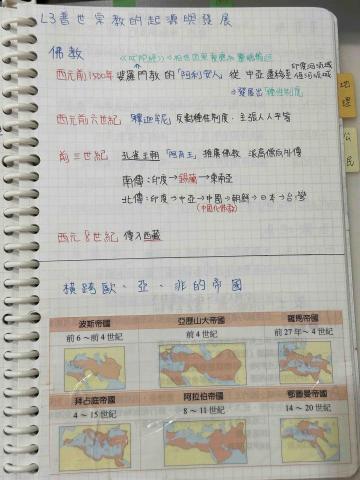 L3普世宗教的起源與發展
佛教
西元前1500年 婆羅門教的「阿利安人」從中亞遷移至印度河流域
恆河流域
→發展出「種姓制度」
西元前六世紀 「釋迦牟尼」反對種姓制度,主張人人平等
前三世紀 孔雀王朝「阿育王」推廣佛教 派高僧向外傳
南傳:印度→錫蘭→東南亞
北傳:印度→中亞→中國→朝鮮→日本→台灣
(中國化佛教)
西元8世紀 傳入西藏
橫跨歐、亞、非的帝國
波斯帝國 亞歷山大帝國 羅馬帝國
前6~前4世紀 前4世紀 前27年~4世紀
拜占庭帝國 阿拉伯帝國 鄂圖曼帝國
4~15世紀 8~11世紀 14~20世紀
地理
公民